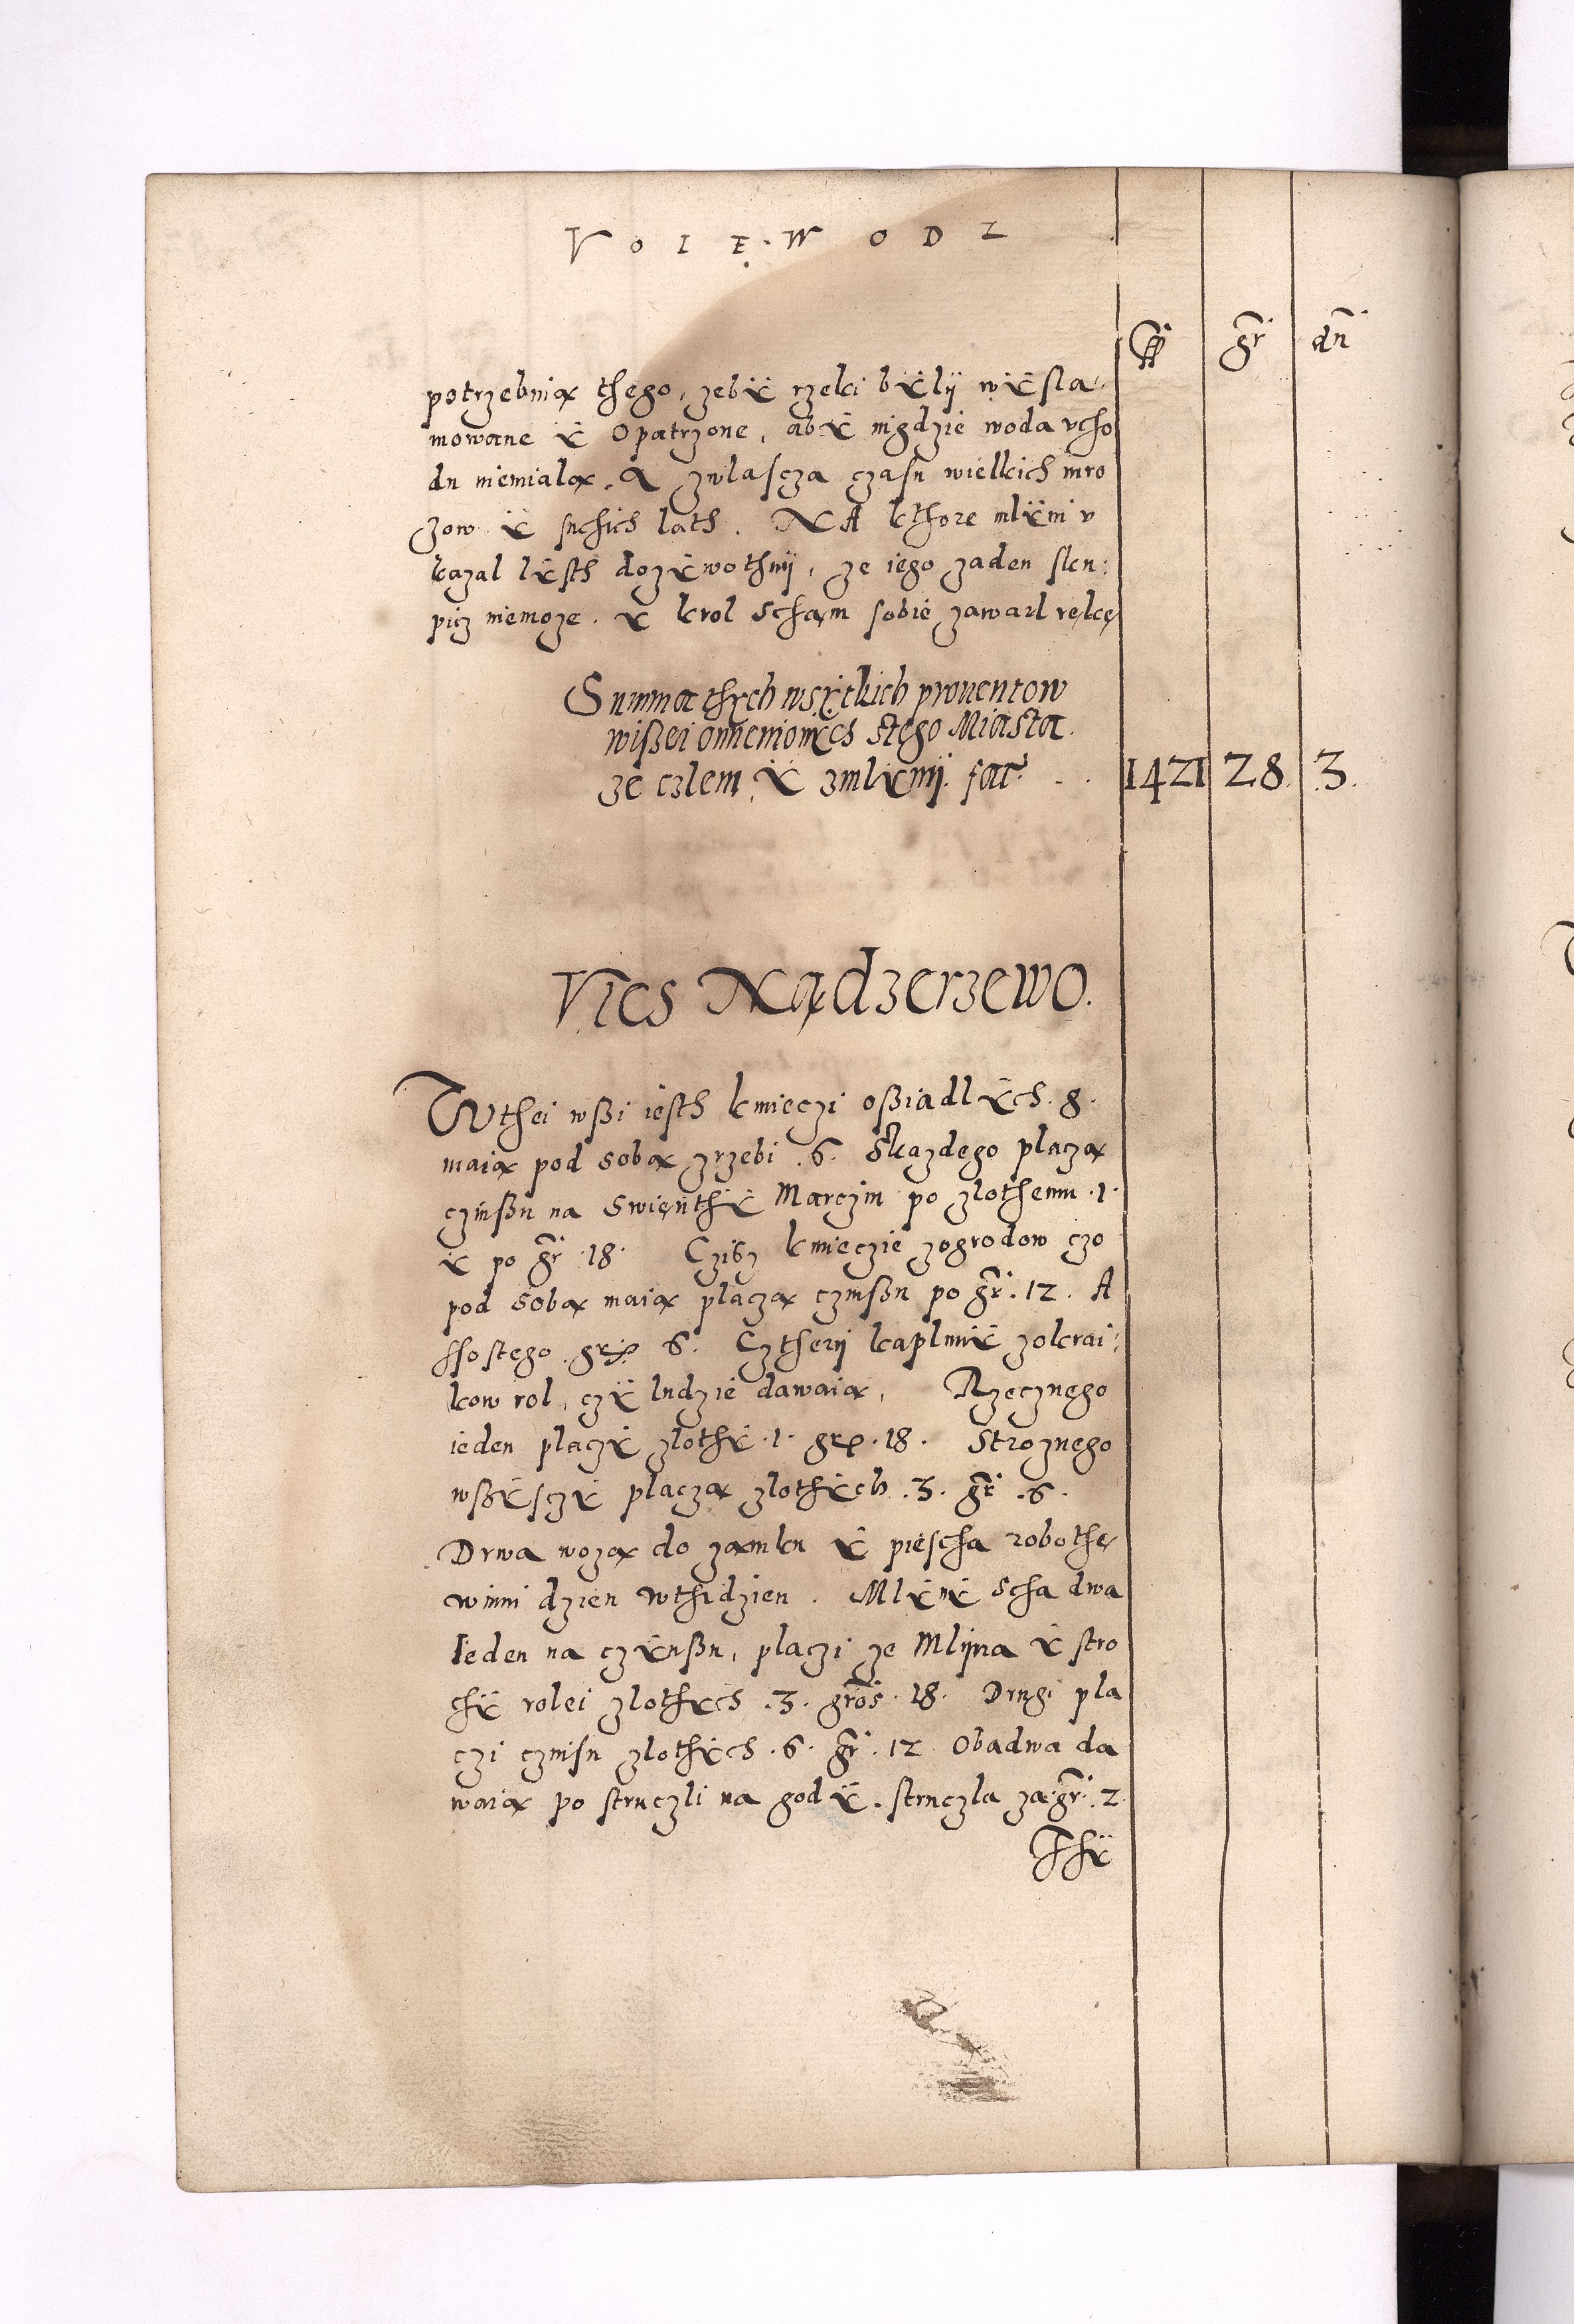 VOIE.WODZ
fl gr dn
potrzebuią thego, zebÿ rzeki bÿlÿ wÿsla-
mowane ÿ Opatrzone, abÿ nigdzie woda vcho
du niemialą. A zwlascza czasu wielkich mro
zow ÿ suchich lath. NA kthore mlÿni v
kazal lÿsth dozÿwothnÿ, ze iego zaden sku:
picz niemoze. ÿ krol Scham sobie zawarl rękę
Summa thÿch wsÿtkich prouentow
wißei omenionÿch stego Miasta.
ze czlem ÿ zmlÿnÿ. fac. 1421 28. 3.
Vies Nądzerzewo.
Wthei wßi iesth kmieczi oßiadlÿch. 8.
maią pod sobą zrzebi .6. Skazdego placzą
czinßu na Swienthÿ Marczin po zlothemu .1.
ÿ po gr .18. Cziß kmieczie zogrodow czo
pod sobą maią placzą czinßu po gr. 12. A
ssostego gr 6. Cztherÿ kaplunÿ zokrai:
kow rol, czÿ ludzie dawaią, Rzecznego
ieden placzÿ zlothÿ .1. gr .18. Stroznego
wßÿsczÿ placzą zlothÿch .3. gr .6.
Drwa wozą do zamku ÿ piescha robothę
winni dzien wthidzien. Mlÿnÿ scha dwa
Ieden na czÿnßu, placzi ze Mlÿna ÿ stro
chÿ rolei zlothÿch .3. gros .18. Drugi pla
czi czinsu zlothÿch .6. gr .12 Obadwa da
waią po struczli na godÿ. struczla za gr. 2
Thÿ